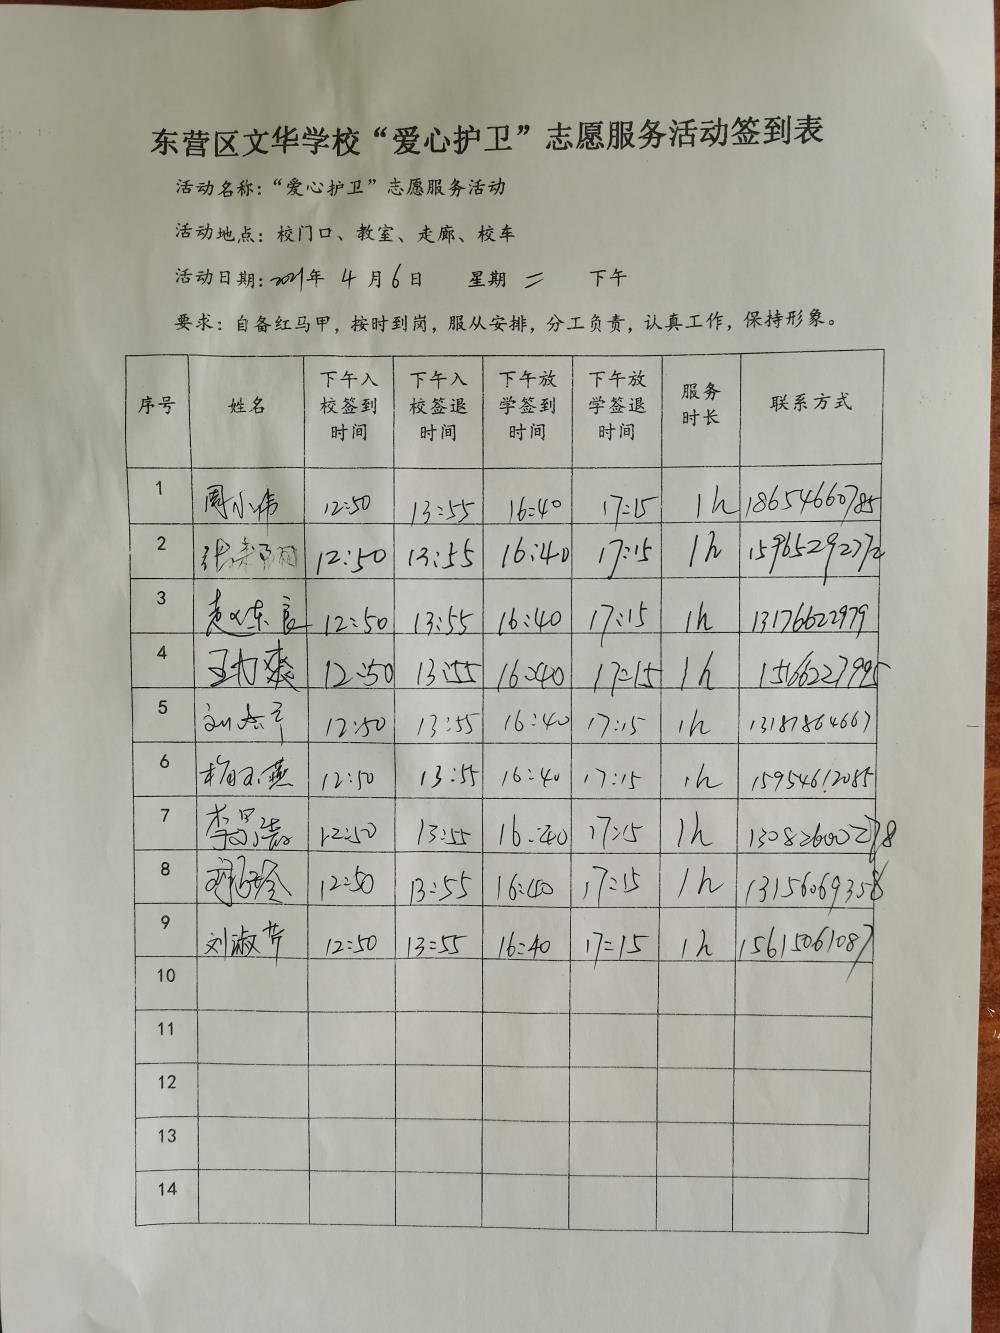 东营区文华学校“爱心护卫”志愿服务活动签到表
活动名称：“爱心护卫”志愿服务活动
活动地点：校门口、教室、走廊、校车
活动日期：2021年 4 月 6 日 星期 二 下午
要求：自备红马甲，按时到岗，服从安排，分工负责，认真工作，保持形象。
序号 姓名 下午入校签到时间 下午入校签退时间 下午放学签到时间 下午放学签退时间 服务时长 联系方式
1 周小伟 12:50 13:55 16:40 17:15 1h 18654660785
2 12:50 13:55 16:40 17:15 1h 15965292772
3 12:50 13:55 16:40 17:15 1h 13176622979
4 12:50 13:55 16:40 17:15 1h 15166227995
5 12:50 13:55 16:40 17:15 1h 13187864667
6 杨玉燕 12:50 13:55 16:40 17:15 1h 15954612085
7 12:50 13:55 16:40 17:15 1h 13082600278
8 12:50 13:55 16:40 17:15 1h 13156069358
9 刘淑芹 12:50 13:55 16:40 17:15 1h 15615061087
10
11
12
13
14